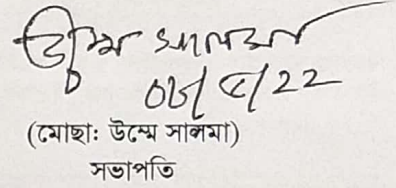 উম্মে সালমা
০৮/৫/২২
(মোছা: উম্মে সালমা)
সভাপতি